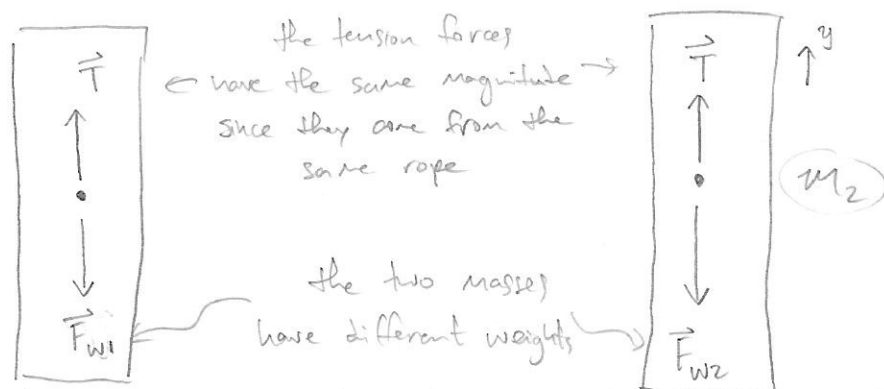 the tension forces
T⃗ ← have the same magnitude → T⃗ ↑ y
since they come from the
same rope
m₂
the two masses
have different weights
F⃗w1 F⃗w2